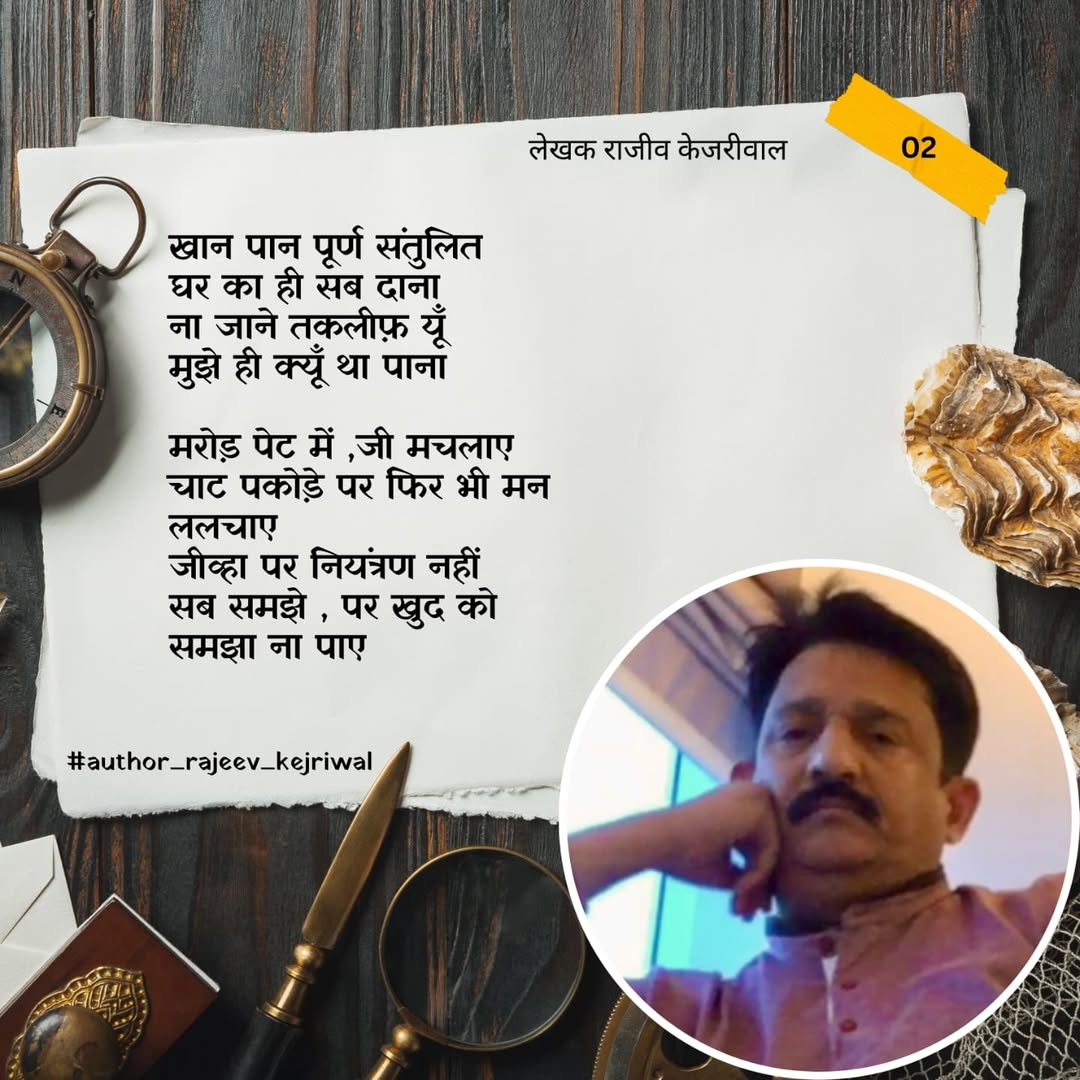 लेखक राजीव केजरीवाल
02
खान पान पूर्ण संतुलित
घर का ही सब दाना
ना जाने तकलीफ़ यूँ
मुझे ही क्यूँ था पाना
मरोड़ पेट में ,जी मचलाए
चाट पकोड़े पर फिर भी मन
ललचाए
जीव्हा पर नियंत्रण नहीं
सब समझे , पर खुद को
समझा ना पाए
#author_rajeev_kejriwal
N
E